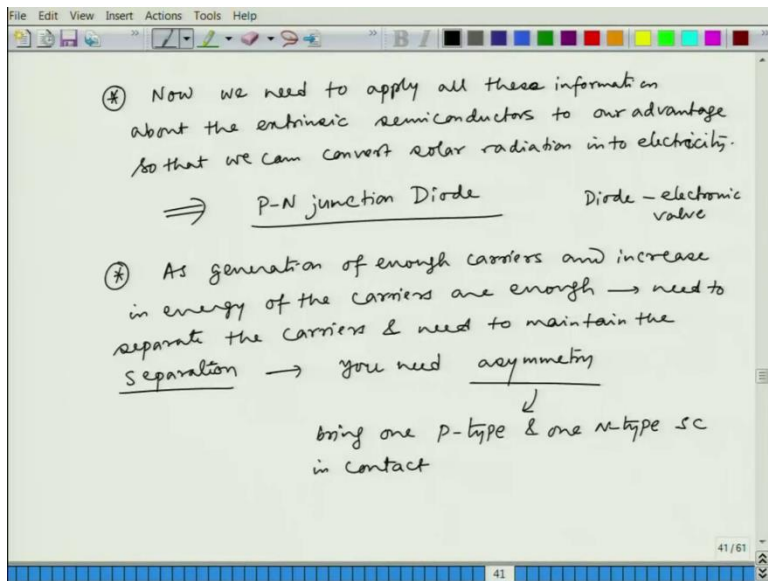 File Edit View Insert Actions Tools Help
B I
(*) Now we need to apply all these information
about the extrinsic semiconductors to our advantage
so that we can convert solar radiation in to electricity.
⇒ P-N junction Diode Diode – electronic
valve
(*) As generation of enough carriers and increase
in energy of the carriers are enough → need to
separate the carriers & need to maintain the
separation → you need asymmetry
↓
bring one P-type & one N-type SC
in contact
41/61
41